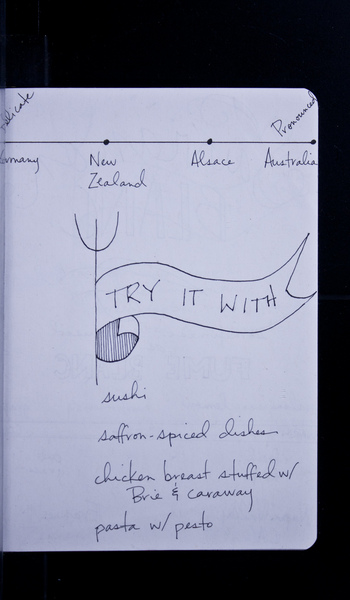 Delicate
Pronounced
Germany
New
Zealand
Alsace
Australia
TRY IT WITH
sushi
saffron-spiced dishes
chicken breast stuffed w/
Brie & caraway
pasta w/ pesto